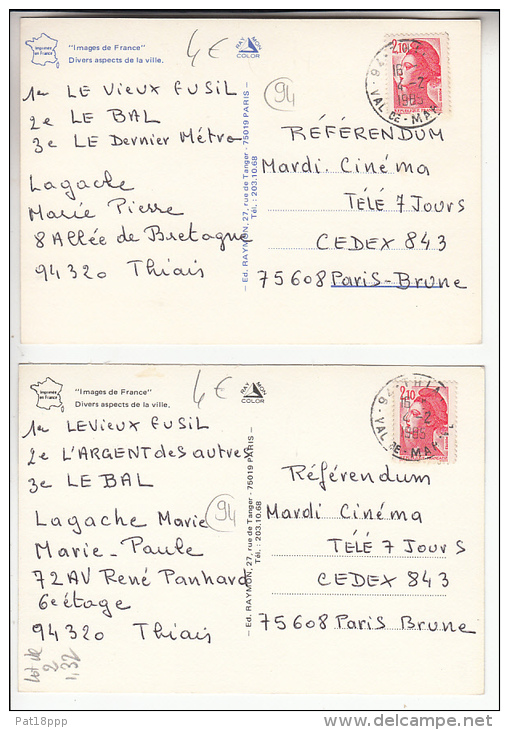 Imprimée
en France
"Images de France"
Divers aspects de la ville.
4€
RAY MON
COLOR
2,10
16
4-2
1985
94
VAL DE-MAR
1er LE VIEUX FUSIL
2e LE BAL
3e LE Dernier Métro
Lagache
Marie Pierre
8 Allée de Bretagne
94320 Thiais
94
— Ed. RAYMON, 27, rue de Tanger - 75019 PARIS —
Tél. : 203.10.68
RÉFÉRENDUM
Mardi Cinéma
TÉLÉ 7 JOURS
CEDEX 843
75608 Paris-Brune
Imprimée
en France
"Images de France"
Divers aspects de la ville.
4€
RAY MON
COLOR
94-THIA
2,10
16
4-2
1985
VAL DE-MAR
1er LE VIEUX FUSIL
2e L'ARGENT des autres
3e LE BAL
Lagache Marie
Marie-Paule
72 AV René Panhard
6e étage
94320 Thiais
94
— Ed. RAYMON, 27, rue de Tanger - 75019 PARIS —
Tél. : 203.10.68
Référendum
Mardi Cinéma
TÉLÉ 7 JOURS
CEDEX 843
75608 Paris Brune
Lot de
2
1,32
Pat18ppp
delcampe.net